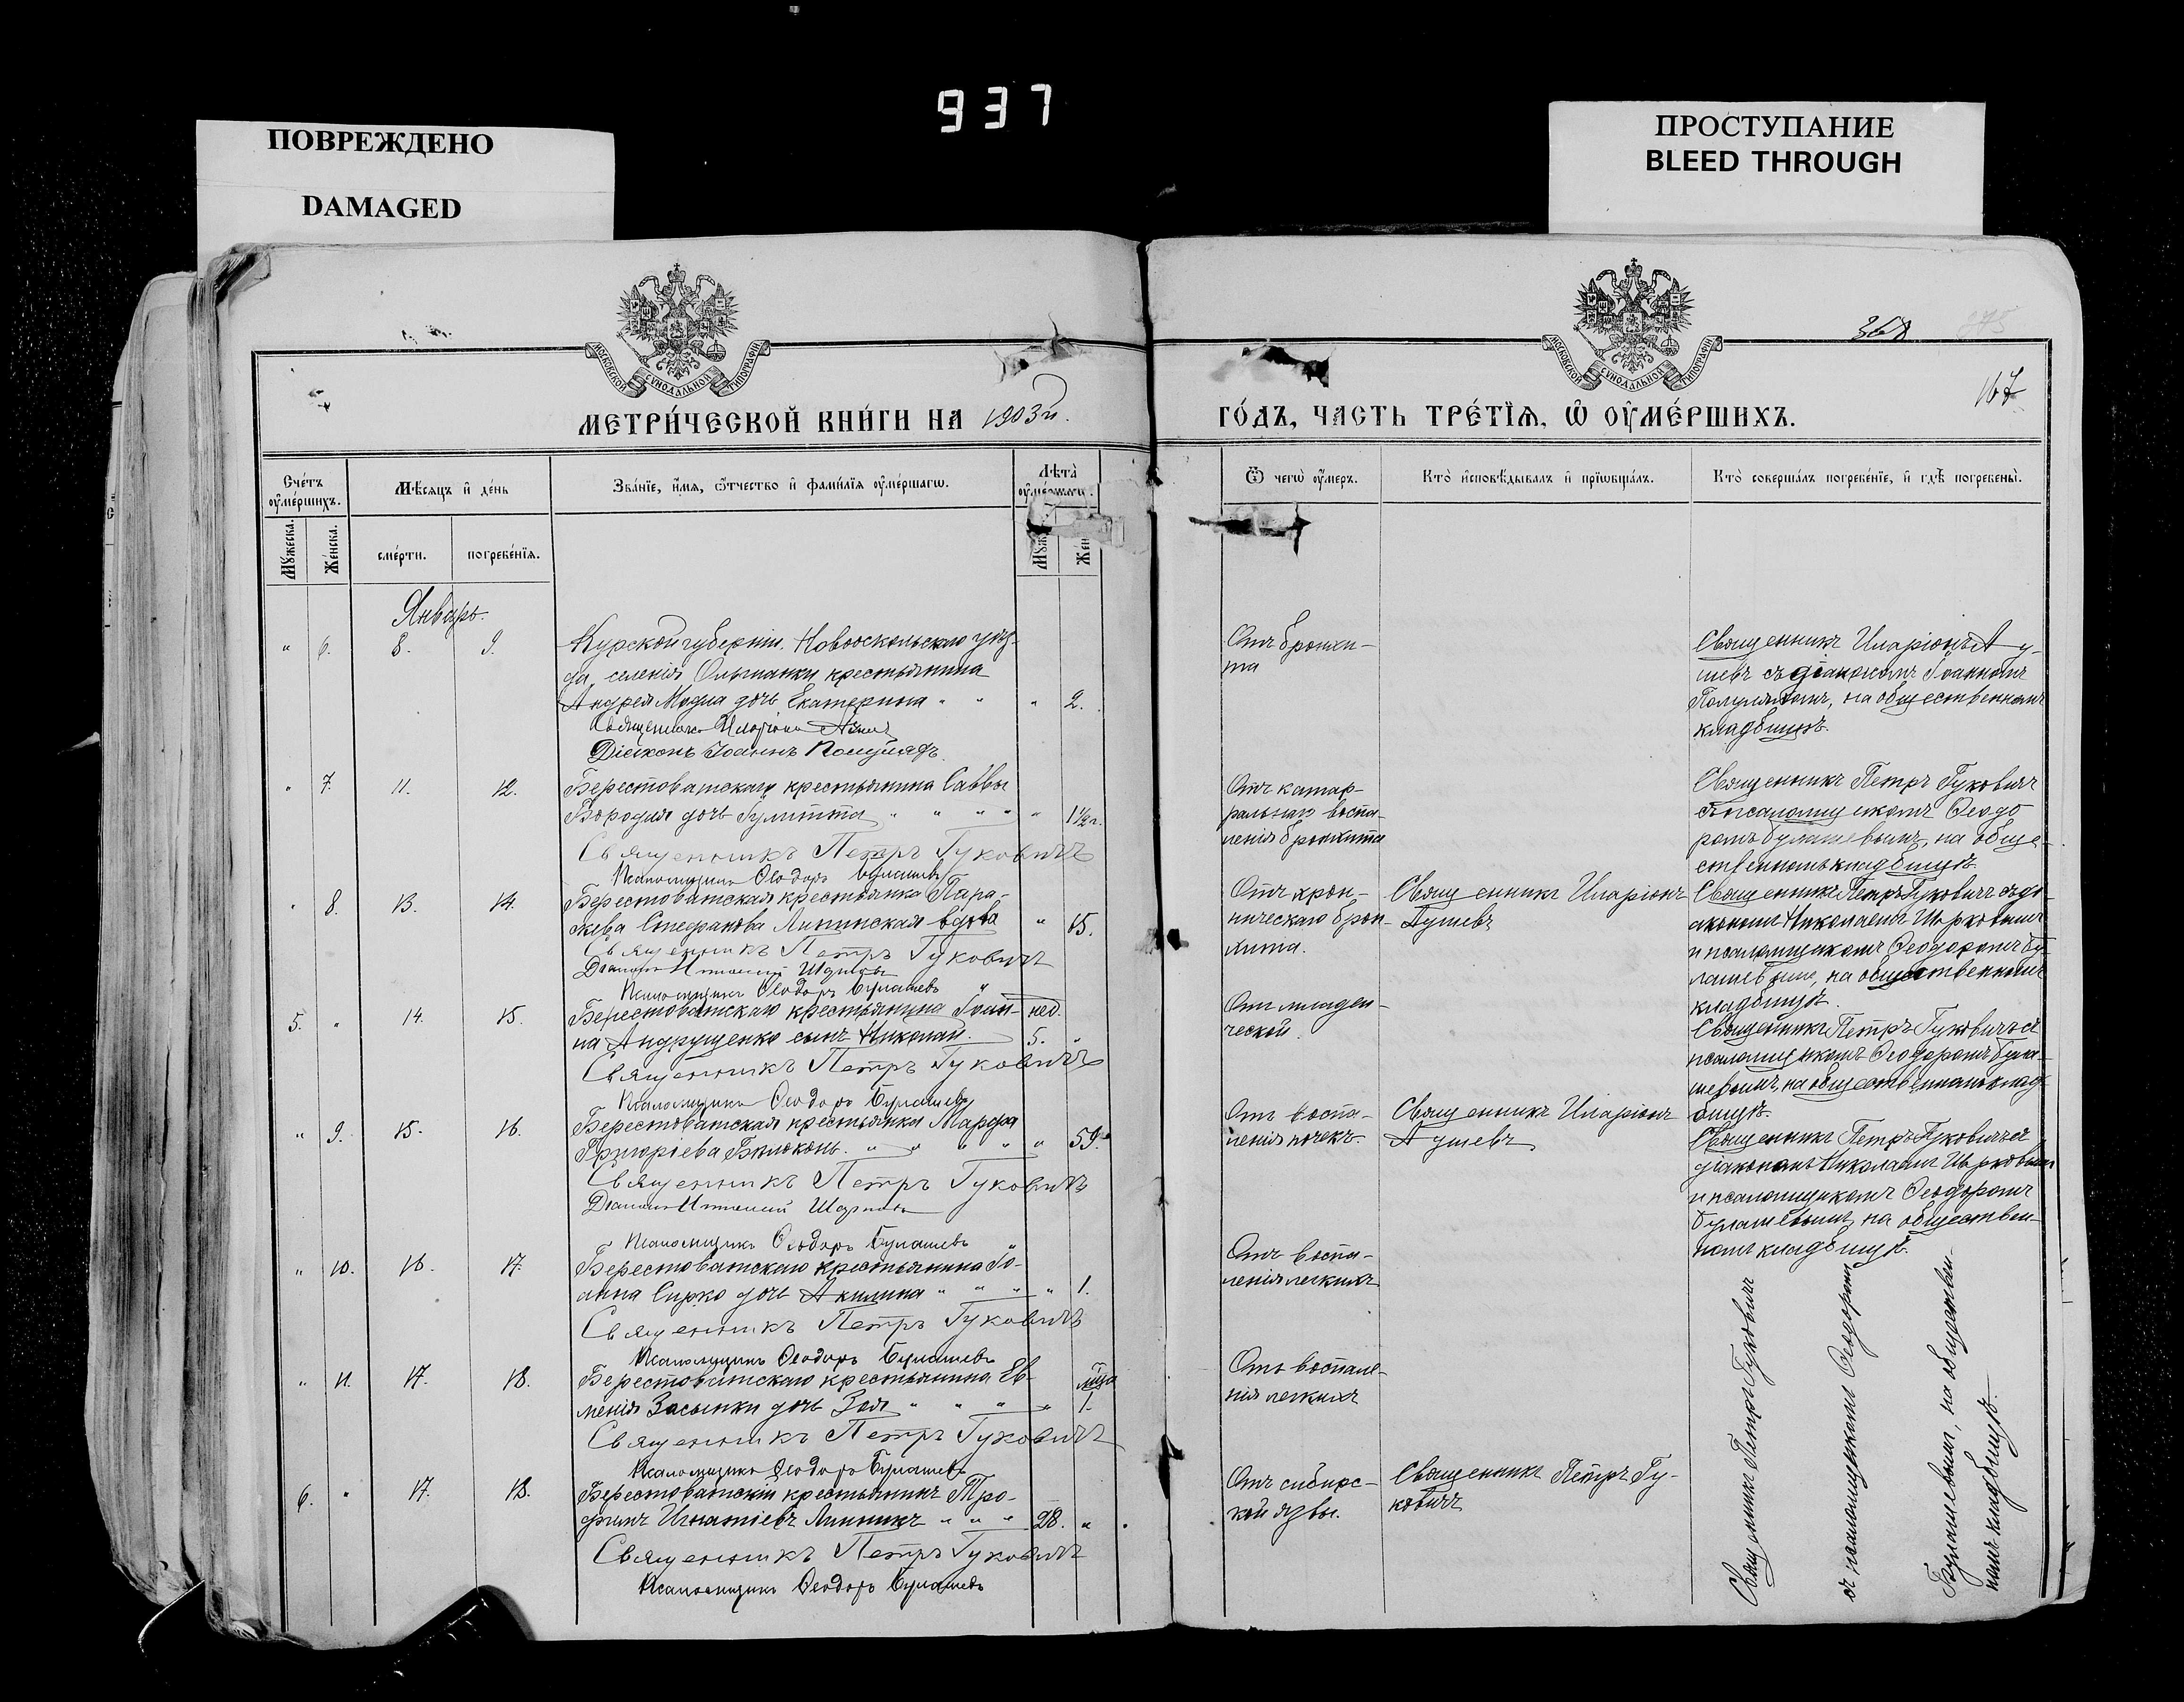 937
ПОВРЕЖДЕНО
DAMAGED
ПРОСТУПАНИЕ
BLEED THROUGH
МОСКОВСКОЙ СѴНОДАЛЬНОЙ ТИПОГРАФІИ
МОСКОВСКОЙ СѴНОДАЛЬНОЙ ТИПОГРАФІИ
368
167
МЕТРИ́ЧЕСКОЙ КНИ́ГИ НА 1903й.
ГО́ДЪ, ЧАСТЬ ТРЕ́ТЇѦ, Ѿ ОУ҆МЕ́РШИХЪ.
Сче́тъ оу҆ме́ршихъ.
Мѣ́сяцъ и҆ де́нь
Зва́нїе, и҆́мѧ, ѻ҆́тчество и҆ фами́лїѧ оу҆ме́ршагѡ.
Лѣ́та оу҆ме́ршагѡ.
Мꙋ́жеска.
Же́нска.
сме́рти.
погребе́нїѧ.
Ѿ чегѡ̀ оу҆́меръ.
Кто̀ и҆сповѣ́дывалъ и҆ прїѡбща́лъ.
Кто̀ соверша́лъ погребе́нїе, и҆ гдѣ̀ погребены̀.
Январь.
" 6. 8. 9. Курской губерніи, Новооскольскаго уѣз-
да, селенія Ольшанки крестьянина
Андрея дочь Екатерина " " " 2.
Діаконъ Іоаннъ
Отъ бронхи-
та
Священникъ Иларіонъ А у-
шевъ съ діакономъ Іоанномъ
на общественномъ
кладбищѣ.
" 7. 11. 12. Берестоватскаго крестьянина Саввы
Бородая дочь Іулитта " " " " " 1½ г.
Священникъ Петръ Гуковичъ
Псаломщикъ Ѳеодоръ Булашевъ
Отъ катар-
ральнаго воспа-
ленія бронхита
Священникъ Петръ Гуковичъ
съ псаломщикомъ Ѳеодо
ромъ Булашевымъ, на обще-
ственномъ кладбищѣ
" 8. 13. 14. Берестоватская крестьянка Пара-
скева Стефанова Липинская вдова " 65.
Священникъ Петръ Гуковичъ
Псаломщикъ Ѳеодоръ Булашевъ
Отъ хрон-
ническаго брон-
хита.
Священникъ Иларіонъ
Аушевъ
Священникъ Петръ Гуковичъ съ ді-
акономъ Николаемъ
и псаломщикомъ Ѳеодоромъ Бу-
лашевымъ, на общественномъ
кладбищѣ.
5. " 14. 15. Берестоватскаго крестьянина Іоан- нед.
на Андрущенко сынъ Николай. 5. "
Священникъ Петръ Гуковичъ
Псаломщикъ Ѳеодоръ Булашевъ
Отъ младен-
ческой.
Священникъ Петръ Гуковичъ съ
псаломщикомъ Ѳеодоромъ Була-
шевымъ, на общественномъ клад-
бищѣ.
" 9. 15. 16. Берестоватская крестьянка Марфа
Григоріева Билоконь. " " " " " 59.
Священникъ Петръ Гуковичъ
Псаломщикъ Ѳеодоръ Булашевъ
Отъ воспа-
ленія почекъ.
Священникъ Иларіонъ
Аушевъ
Священникъ Петръ Гуковичъ съ
діакономъ Николаемъ
и псаломщикомъ Ѳеодоромъ
Булашевымъ, на обществен-
номъ кладбищѣ.
" 10. 16. 17. Берестоватскаго крестьянина Іо-
анна Сирко дочь Акилина " " " " 1.
Священникъ Петръ Гуковичъ
Псаломщикъ Ѳеодоръ Булашевъ
Отъ воспа-
ленія легкихъ
" 11. 17. 18. Берестоватскаго крестьянина Ев-
менія Засыпки дочь Зоя " " " " 1.
Священникъ Петръ Гуковичъ
Псаломщикъ Ѳеодоръ Булашевъ
Отъ воспале-
нія легкихъ
6. " 17. 18. Берестоватскій крестьянинъ Тро-
фимъ Игнатіевъ Линникъ " " " 28. "
Священникъ Петръ Гуковичъ
Псаломщикъ Ѳеодоръ Булашевъ
Отъ сибирс-
кой язвы.
Священникъ Петръ Гу-
ковичъ
Священникъ Петръ Гуковичъ
съ псаломщикомъ Ѳеодоромъ
Булашевымъ, на обществен-
номъ кладбищѣ.